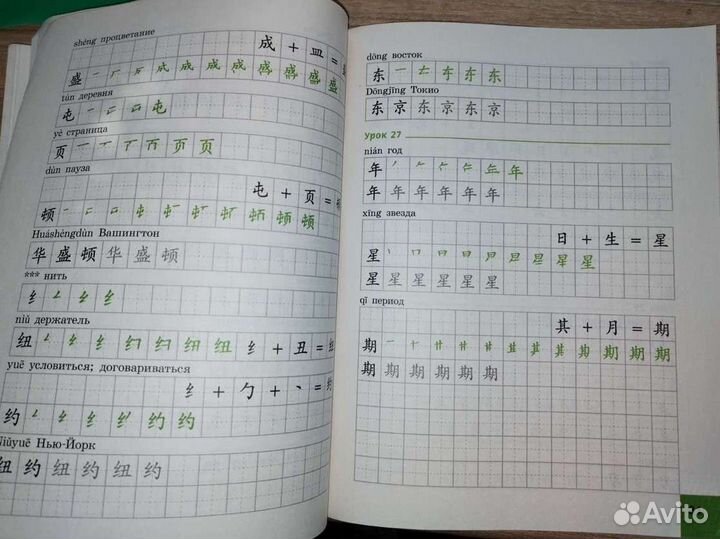 shèng процветание
成 + 皿 =
盛 一 厂 厂 成 成 成 成 成 盛 盛 盛
tún деревня
屯 一 屯
yè страница
页 一 一 丆 页 页 页
dùn пауза
屯 + 页 = 顿
顿 一 屯 屯 顿 顿
Huáshèngdùn Вашингтон
华 盛 顿 华 盛 顿
*** нить
纟 纟
niǔ держатель
纽 纟 纽 纽 纟 + 丑 = 纽
yuē условиться; договариваться
纟 + 勺 + 丶 =
约 纟 约 约
Niǔyuē Нью-Йорк
纽 约 纽 约 纽 约
dōng восток
东 一 东 东
Dōngjīng Токио
东 京 东 京 东 京
Урок 27
nián год
年 年
年 年 年 年 年 年
xīng звезда
日 + 生 = 星
星 丨 冂 日 日 星 星
星 星 星 星 星 星
qī период
其 + 月 = 期
期 一 十 廾 其 期 期 期 期
期 期 期 期 期 期
Avito